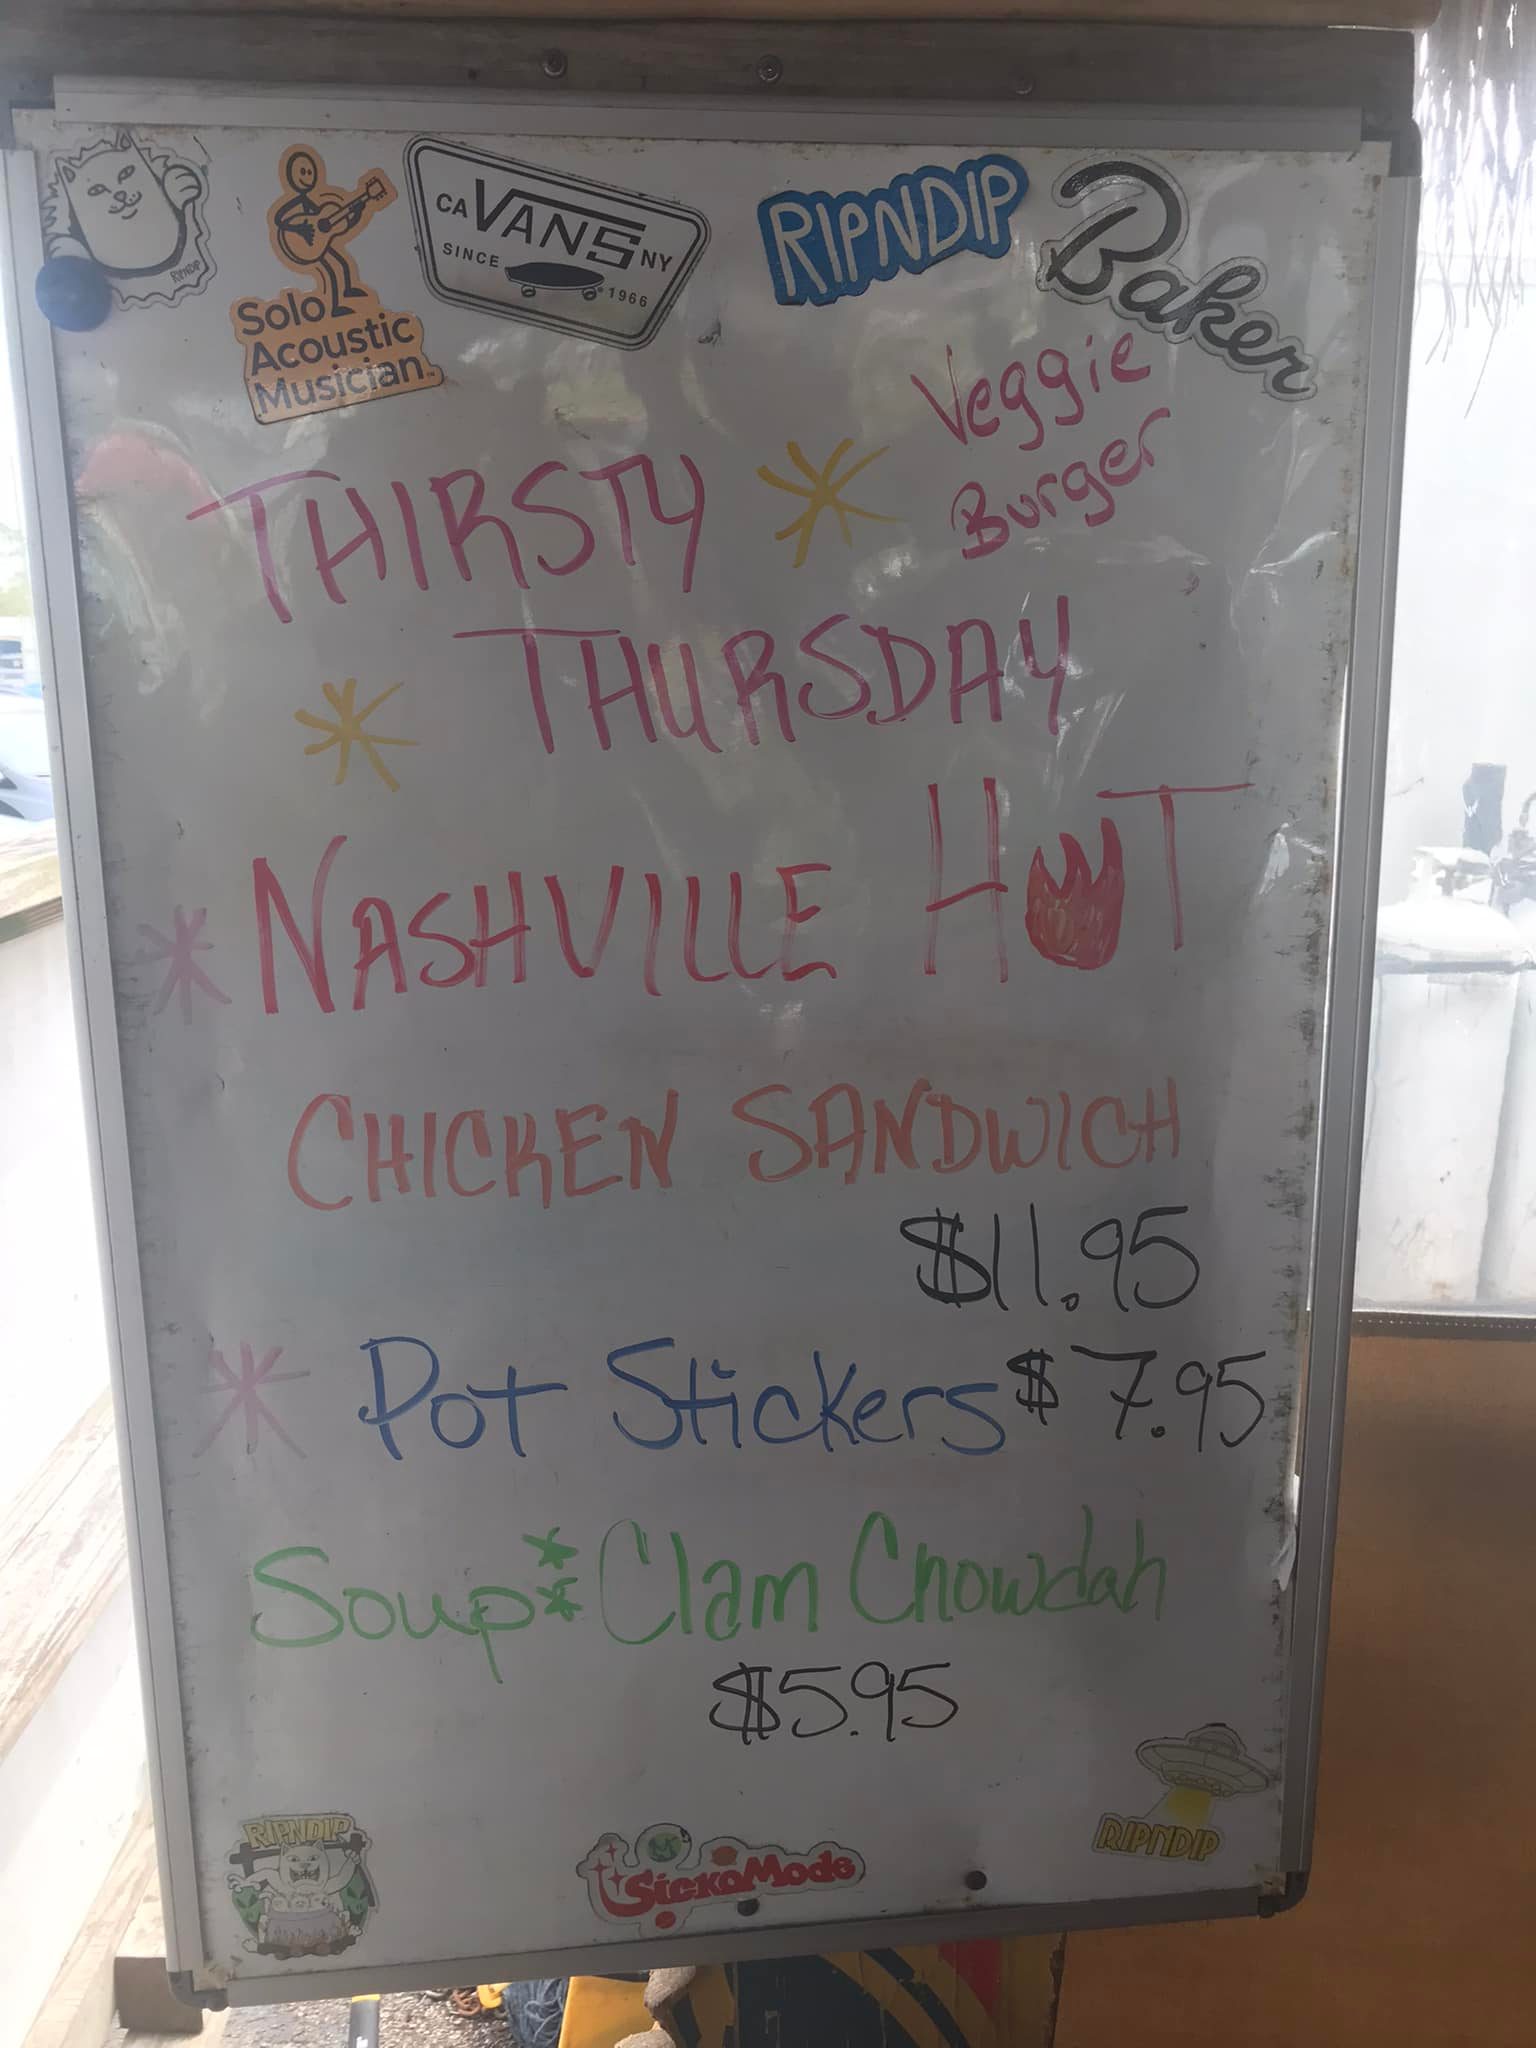 RIPNDIP
Solo
Acoustic
Musician™
CA VANS NY
SINCE 1966
RIPNDIP
Baker
Veggie
Burger
THIRSTY
THURSDAY
NASHVILLE HOT
CHICKEN SANDWICH
$11.95
Pot Stickers $7.95
Soup: Clam Chowdah
$5.95
RIPNDIP
SickoMode
RIPNDIP